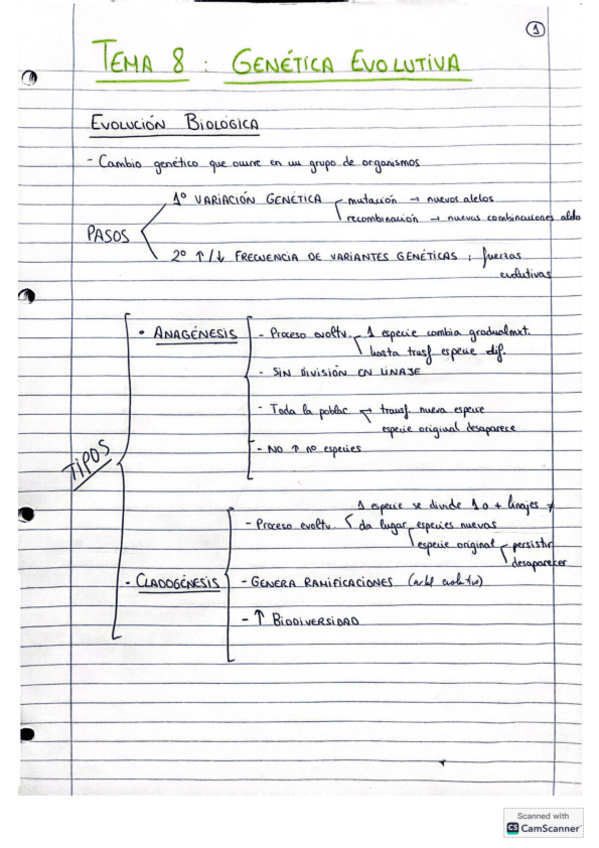 1
TEMA 8 : GENÉTICA EVOLUTIVA
EVOLUCIÓN BIOLÓGICA
- Cambio genético que ocurre en un grupo de organismos
PASOS
1º VARIACIÓN GENÉTICA
mutación → nuevos alelos
recombinación → nuevas combinaciones alelo
2º ↑/↓ FRECUENCIA DE VARIANTES GENÉTICAS : fuerzas
evolutivas
TIPOS
• ANAGÉNESIS
- Proceso evoltv.
1 especie cambia gradualmnt.
hasta trasf. especie dif.
- SIN DIVISIÓN EN LINAJE
- Toda la poblac
transf. nueva especie
especie original desaparece
- NO ↑ nº especies
• CLADOGÉNESIS
- Proceso evoltv.
1 especie se divide 1 o + linajes ≠
da lugar especies nuevas
especie original
persistir
desaparecer
- GENERA RAMIFICACIONES (arbl evolutivo)
- ↑ BIODIVERSIDAD
Scanned with
CS CamScanner